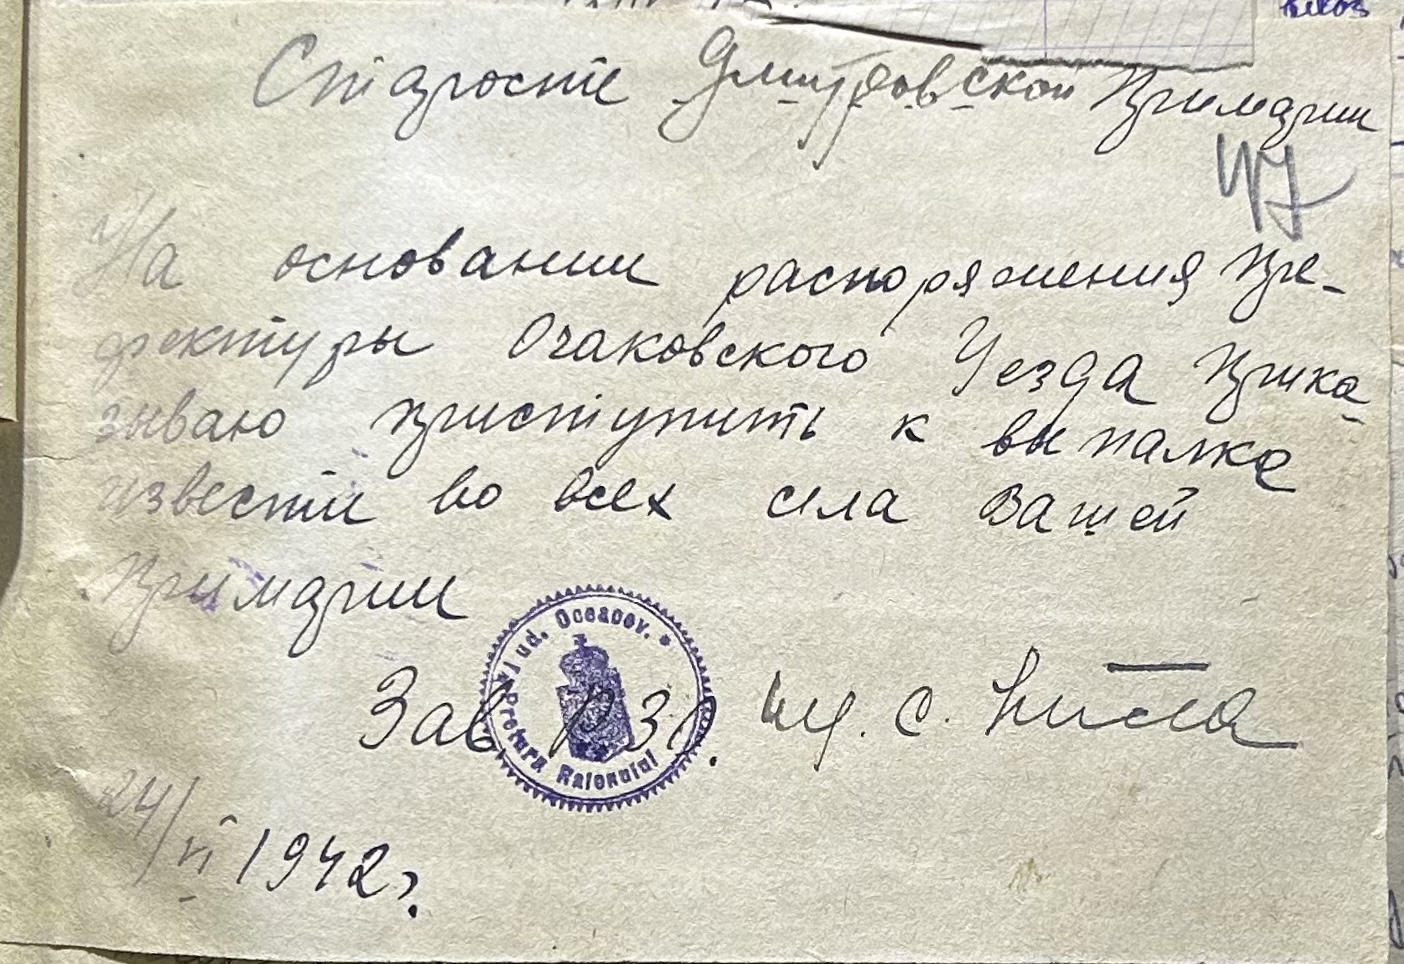 Старосте Дмитровской Примарии
47
На основании распоряжения Пре-
фектуры Очаковского Уезда Прика
зываю приступить к выпалке
извести во всех села Вашей
Примарии
Jud. Oceacov. *
Pretura Raionului
Зав.
24/VI 1942 г.